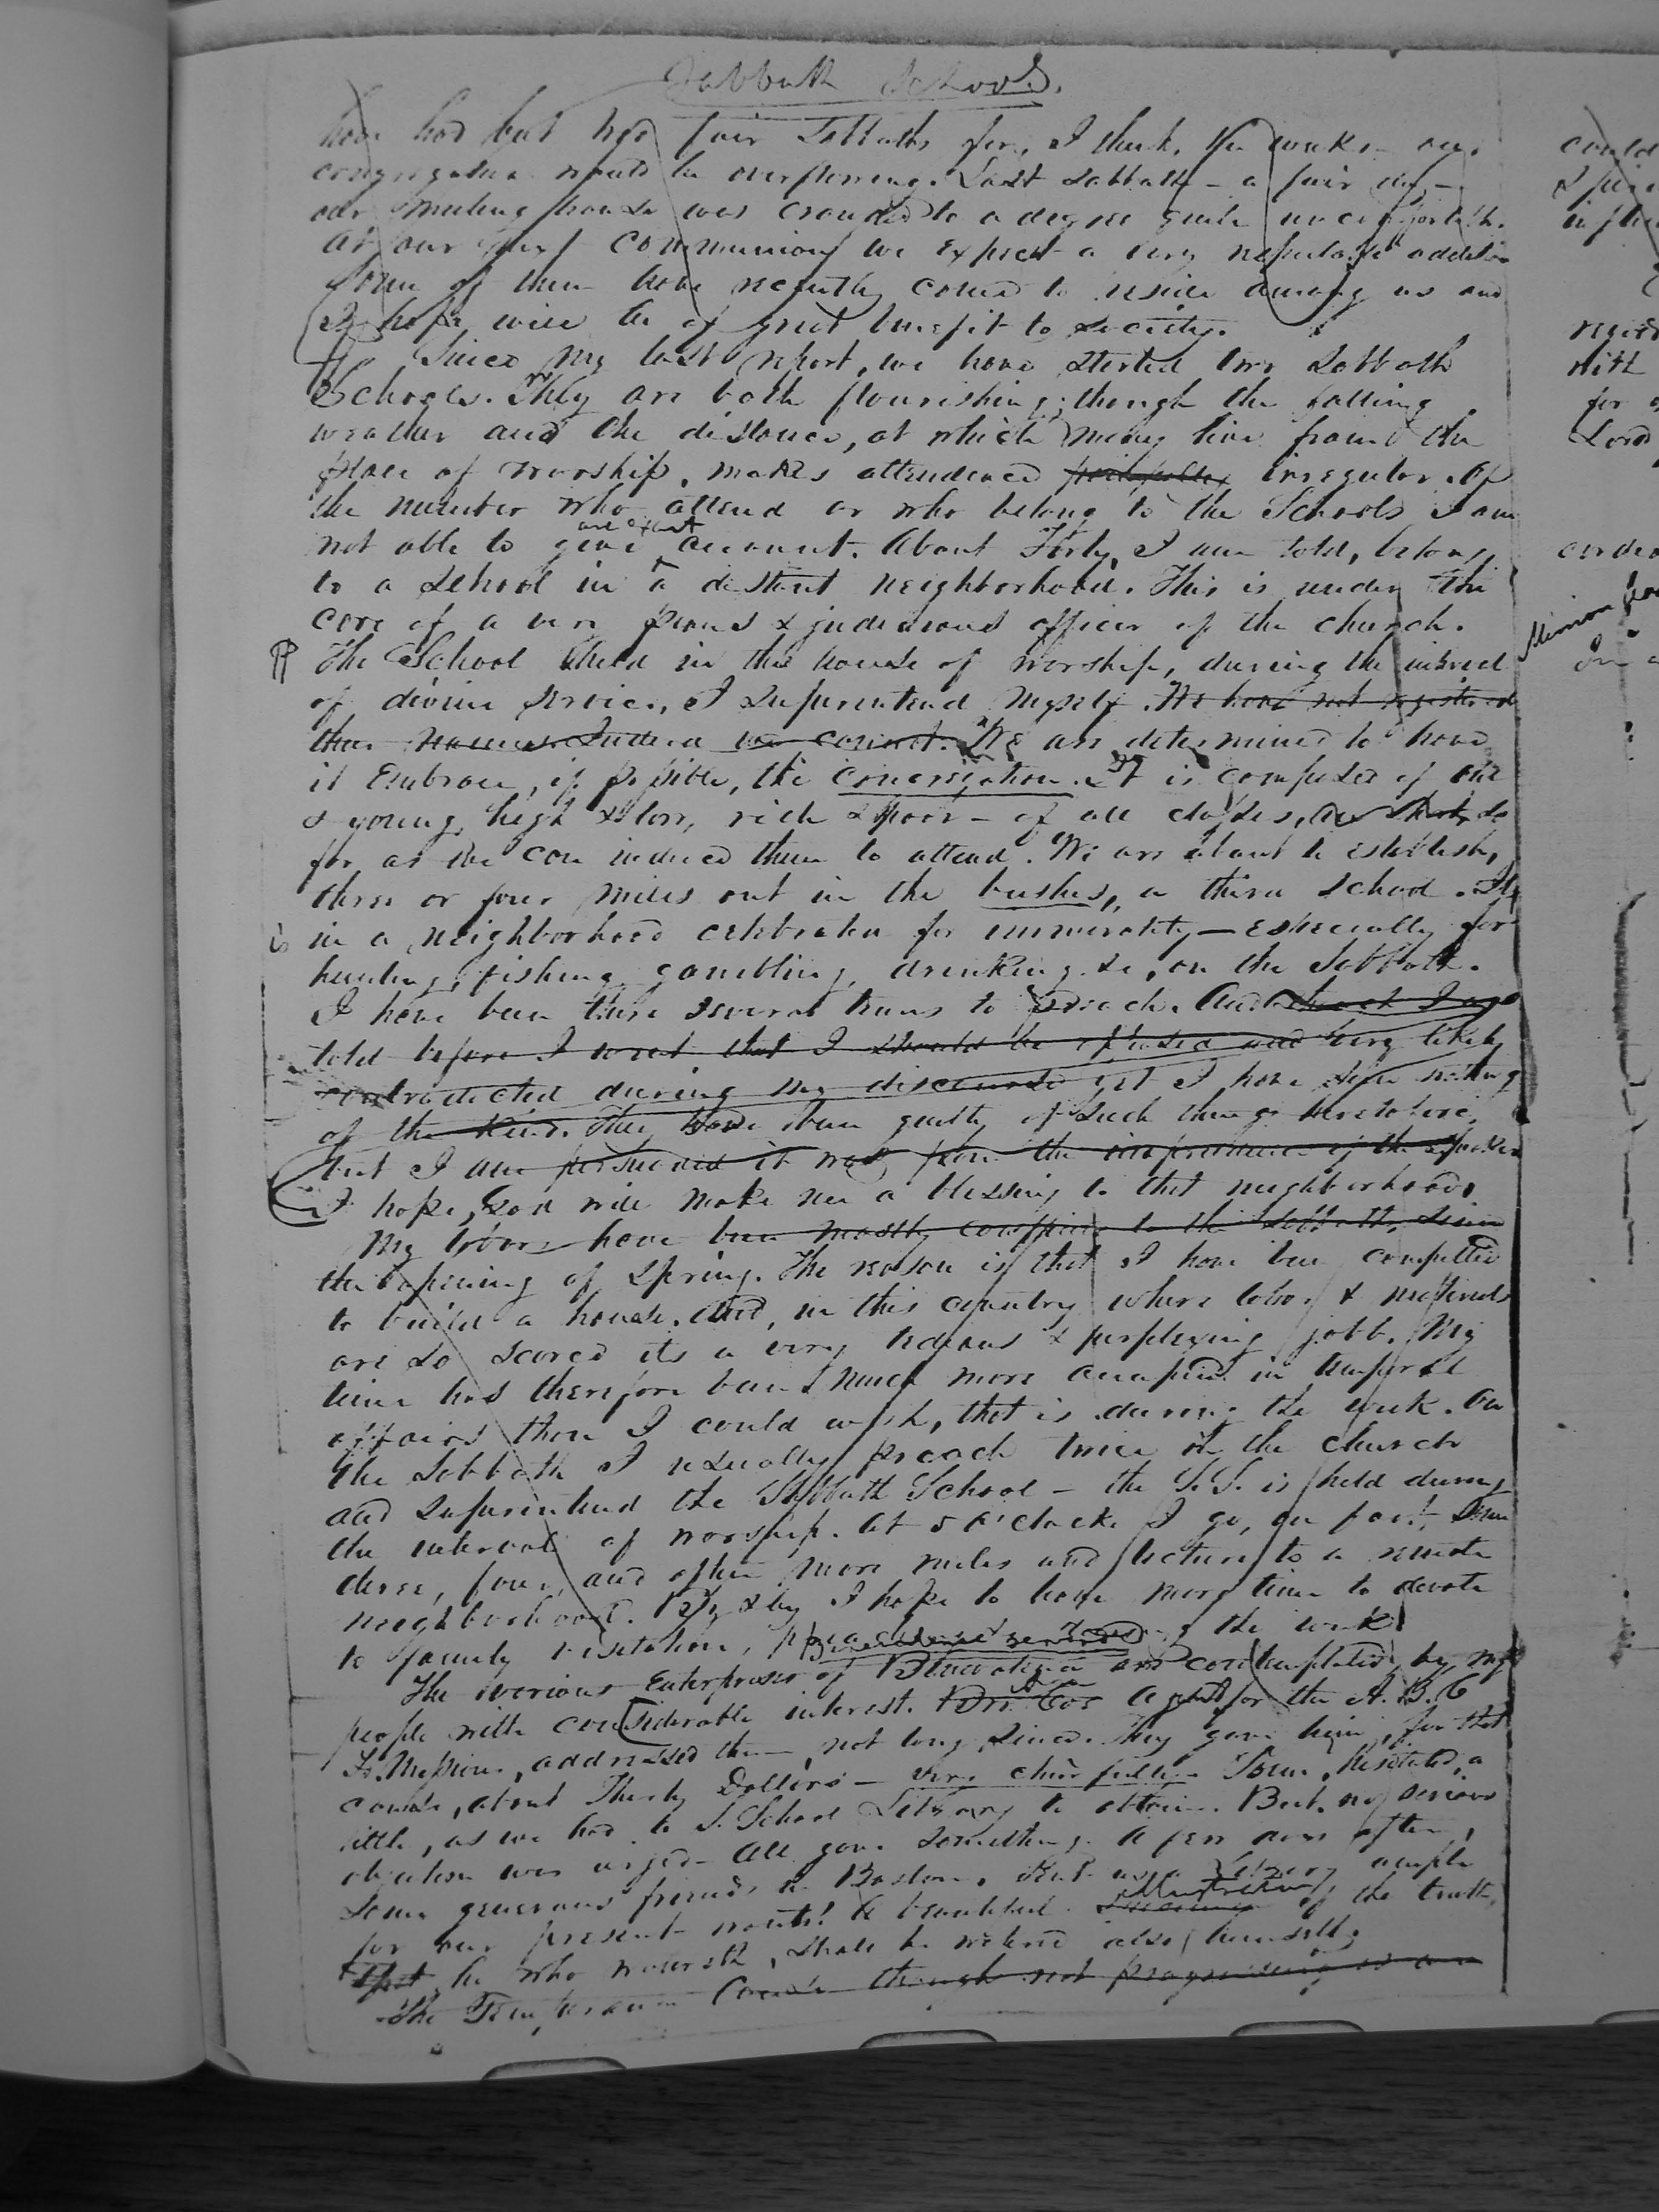 Sabbath Schools.
have had but two fair Sabbaths for, I think, weeks our
congregation would be overflowing. Last Sabbath - a fair day -
our meeting house was crowded to a degree quite uncomfortable.
At our next communion we expect a very respectable addition
Some of them have recently come to reside among us and
I hope, will be of great benefit to society.
Since my last report, we have started two Sabbath
Schools. They are both flourishing; though the falling
weather and the distance, at which many live from the
place of worship, makes attendance irregular. Of
the number who attend or who belong to the Schools I am
not able to give an exact account. About Forty, I am told, belong
to a School in a distant neighborhood. This is under the
care of a very pious & judicious officer of the church.
The School held in the house of worship, during the interval
of divine service, I superintend myself. We have not registered
their names. Indeed we cannot. We are determined to have
it Embrace, if possible, the congregation. It is composed of old
& young, high & low, rich & poor - of all classes, so
far as we can induce them to attend. We are about to establish,
three or four miles out in the bushes, a third School. It
is in a neighborhood celebrated for immorality - especially for
hunting, fishing, gambling, drinking &c, on the Sabbath.
I have been there several times to preach. And
told before I went that I should be and very likely
contradicted during my discourse yet I have seen nothing
of the kind. They have been guilty of such things heretofore,
but I am persuaded it was from the imprudence of the speaker
I hope, God will make me a blessing to that neighborhood.
My labors have been mostly confined to the Sabbath, since
the opening of Spring. The reason is that I have been compelled
to build a house. And, in this country where labor & materials
are so scarce its a very tedious & perplexing jobb. My
time has therefore been much more occupied in temporal
affairs than I could wish, that is during the week. On
the Sabbath I usually preach twice in the church
and superintend the Sabbath School - the S.S. is held during
the interval of worship. At 5 o'clock I go, on foot, some
three, four, and often more miles and lecture to a remote
neighborhood. By & by I hope to have more time to devote
to family visitation, the week
The various Enterprises of Benevolence are contemplated by my
people with considerable interest. Agent for the A.B.C
F. Missions, addressed them, not long since. They gave him, for that
cause, about Thirty Dollars - very cheerfully. Some hesitated, a
little, as we had a S. School Library to obtain. But, no serious
objection was urged - All gave something. A few days after,
Some generous friends in Boston, sent us a Library ample
for our present wants! A beautiful illustration of the truth,
that he who watereth, shall be watered also himself.
The Temperance Cause though not progressing as
could
for
Lord
with
Mission